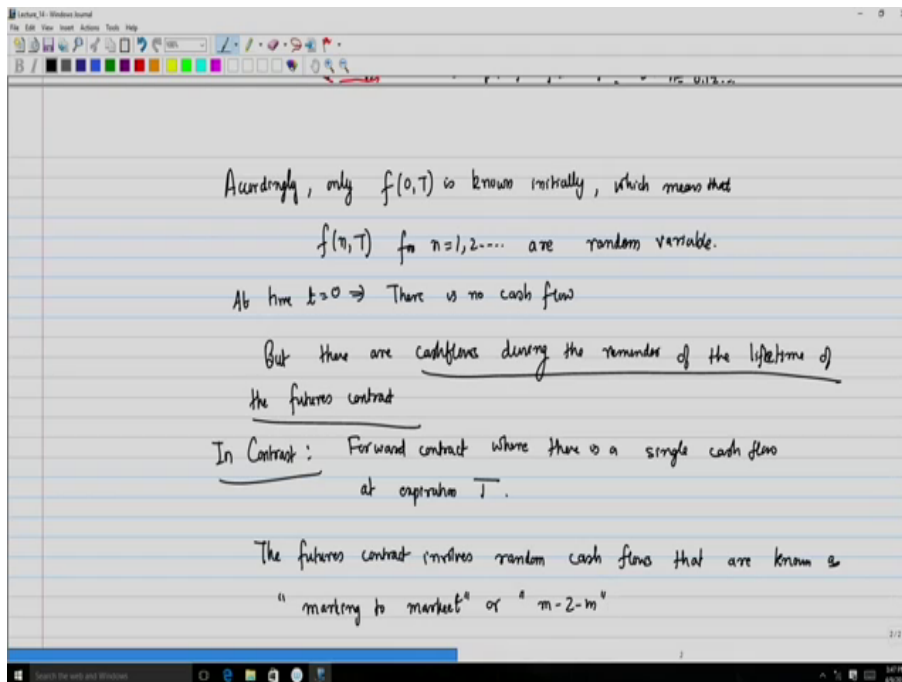 Lecture_14 - Windows Journal
File Edit View Insert Actions Tools Help
B I
Accordingly, only f(0,T) is known initially, which means that
f(n,T) for n=1,2.... are random variable.
At time t=0 ⇒ There is no cash flow
But there are cashflows during the remainder of the lifetime of
the futures contract
In Contrast : Forward contract where there is a single cash flow
at expiration T.
The futures contract involves random cash flows that are known as
"marking to market" or "m-2-m"
2/2
Search the web and Windows